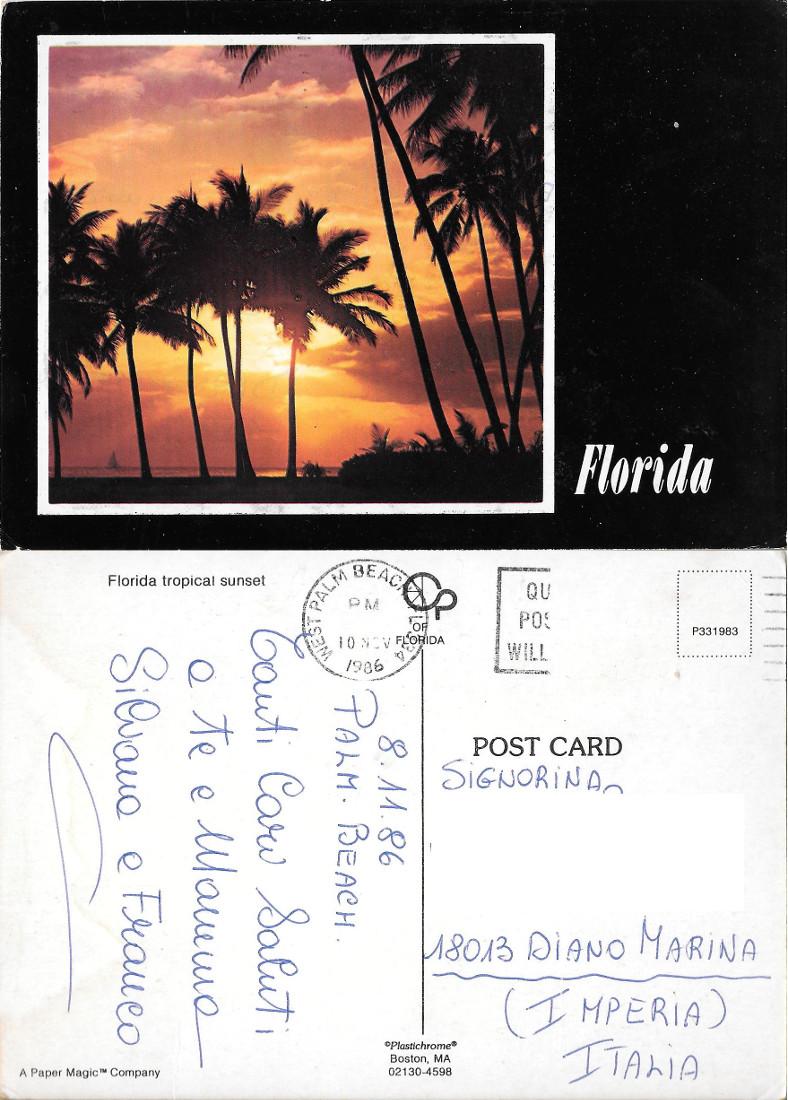 Florida
Florida tropical sunset
WEST PALM BEACH, FL 334
PM
10 NOV
1986
OF
FLORIDA
QU
POS
WILL
P331983
8.11.86
PALM. BEACH.
Tanti Cari Saluti
a Te e Mamma
Silvana e Franco
POST CARD
SIGNORINA
18013 DIANO MARINA
(IMPERIA)
ITALIA
©Plastichrome®
Boston, MA
02130-4598
A Paper Magic™ Company